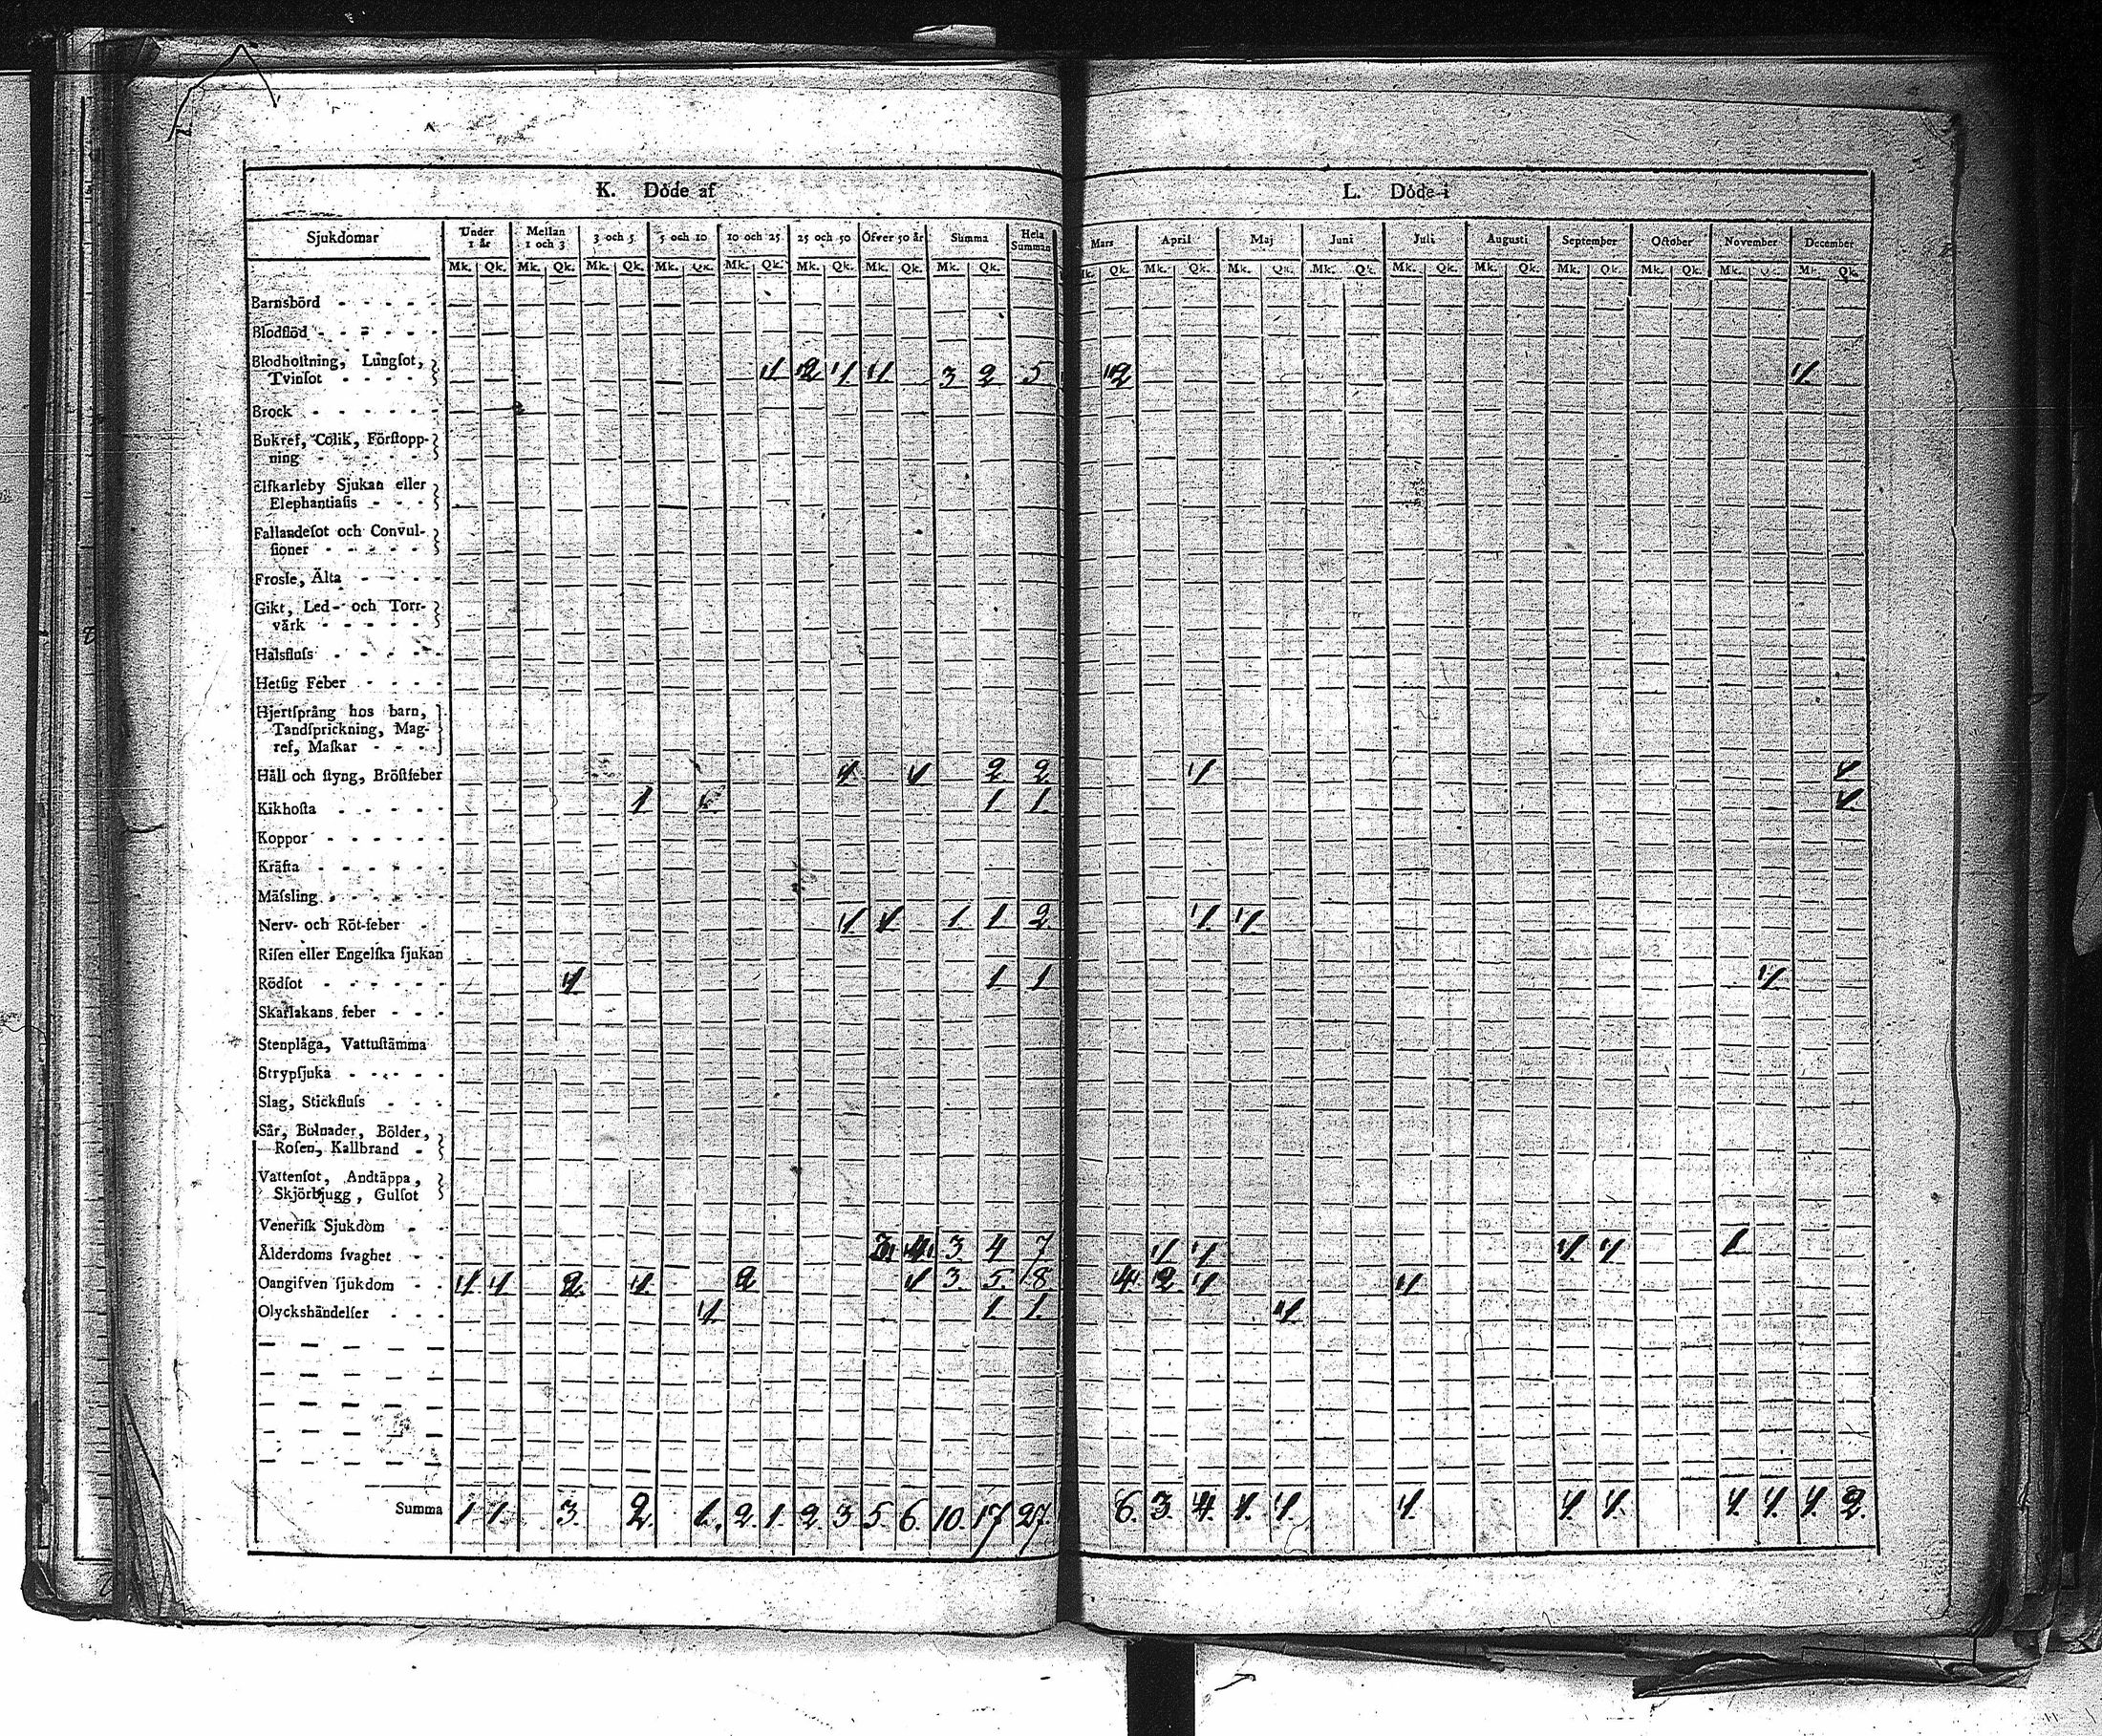 K. Döde af L. Döde i
Sjukdomar Under 1 år Mellan 1 och 3 3 och 5 5 och 10 10 och 25 25 och 50 Öfver 50 år Summa Hela Summan Mars April Maj Junii Julii Augusti September October November December
Mk. Qk. Mk. Qk. Mk. Qk. Mk. Qk. Mk. Qk. Mk. Qk. Mk. Qk. Mk. Qk. Mk. Qk. Mk. Qk. Mk. Qk. Mk. Qk. Mk. Qk. Mk. Qk. Mk. Qk. Mk. Qk. Mk. Qk. Mk. Qk.
Barnsbörd
Blodflöd
Blodhoſtning, Lungſot,
Tvinſot 1 2 1 1 3 2 5 2 1
Brock
Bukref, Colik, Förſtopp-
ning
Elfkarleby Sjukan eller
Elephantiaſis
Fallandeſot och Convul-
ſioner
Frosſe, Älta
Gikt, Led- och Torr-
värk
Halsfluſs
Hetſig Feber
Hjertſprång hos barn,
Tandſprickning, Mag-
ref, Maſkar
Håll och ſtyng, Bröſtfeber 1 1 2 2 1 1
Kikhoſta 1 1 1 1
Koppor
Kräfta
Mäſsling
Nerv- och Röt-feber 1 1 1 1 2 1 1
Riſen eller Engelſka ſjukan
Rödſot 1 1 1 1
Skarlakans feber
Stenplåga, Vattuſtämma
Strypſjuka
Slag, Stickfluſs
Sår, Bulnader, Bölder,
Roſen, Kallbrand
Vattenſot, Andtäppa,
Skjörbjugg, Gulſot
Veneriſk Sjukdom
Ålderdoms ſvaghet 3 4 3 4 7 1 1 1 1 1
Oangifven ſjukdom 1 1 2 1 2 1 3 5 8 4 2 1 1
Olyckshändelſer 1 1 1 1
Summa 1 1 3 2 1 2 1 2 3 5 6 10 17 27 6 3 4 1 1 1 1 1 1 1 1 2